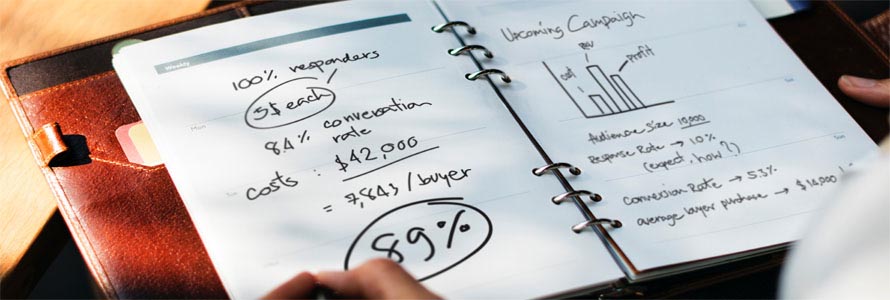 Weekly
100% responders
5$ each
8.4% conversation
rate
costs : $42,000
= 7,843/buyer
89%
Upcoming Campaign
cost
profit
Audience Size 10,000
Response Rate → 10%
(expect. how?)
conversion Rate → 5.3%
average buyer purchase → $14,000
Mon